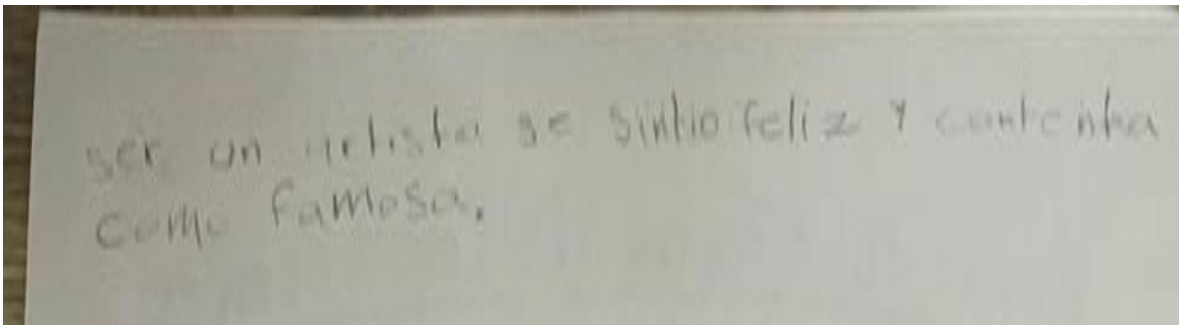 ser un artista se sintio feliz y contenta
como famosa.